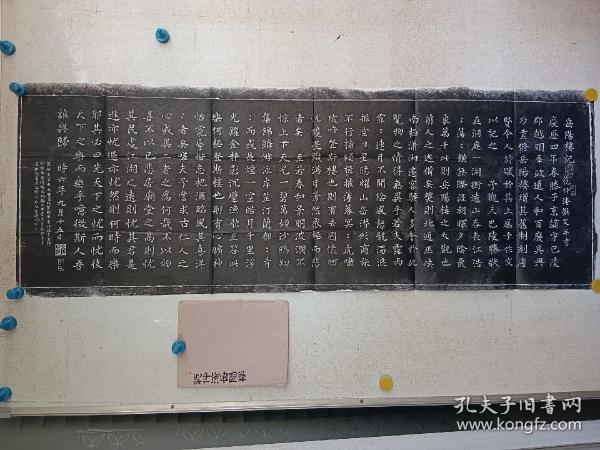 岳陽樓記
慶歷四年春滕子京謫守巴陵
郡越明年政通人和百廢具興
乃重修岳陽樓增其舊制刻唐
賢今人詩賦於其上屬予作文
以記之 予觀夫巴陵勝狀
在洞庭一湖銜遠山吞長江浩
景萬千此則岳陽樓之大觀也
前人之述備矣然則北通巫峽
南極瀟湘遷客騷人多會於此
覽物之情得無異乎若夫霪雨
霏霏連月不開陰風怒號濁浪
排空日星隱耀山岳潛形商旅
不行檣傾楫摧薄暮冥冥虎嘯
猿啼登斯樓也則有去國懷鄉
憂讒畏譏滿目蕭然感極而悲
者矣 至若春和景明波瀾不
驚上下天光一碧萬頃沙鷗翔
集錦鱗游泳岸芷汀蘭郁郁青
青而或長煙一空皓月千里浮
光躍金靜影沉璧漁歌互答此
樂何極登斯樓也則有心曠神
怡寵辱偕忘把酒臨風其喜洋
洋者矣嗟夫予嘗求古仁人之
心或異二者之為何哉不以物
喜不以己悲居廟堂之高則憂
其民處江湖之遠則憂其君是
進亦憂退亦憂然則何時而樂
耶其必曰先天下之憂而憂後
天下之樂而樂乎噫微斯人吾
誰與歸 時六年九月十五日
孔夫子旧书网
www.kongfz.com